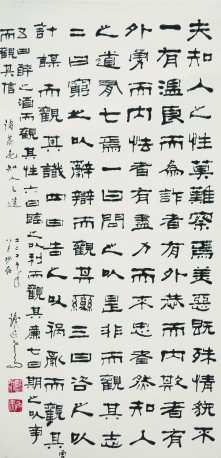 夫知人之性莫難察焉美惡既殊情貌不
一有溫良而為詐者有外恭而內欺者有
外勇而內怯者有盡力而不忠者然知人
之道有七焉一曰問之以是非而觀其志
二曰窮之以辭辯而觀其變三曰咨之以
計謀而觀其識四曰告之以禍亂而觀其勇
五曰醉之酒而觀其性六曰臨之以利而觀其廉七曰期之以事
而觀其信
諸葛亮知人之道